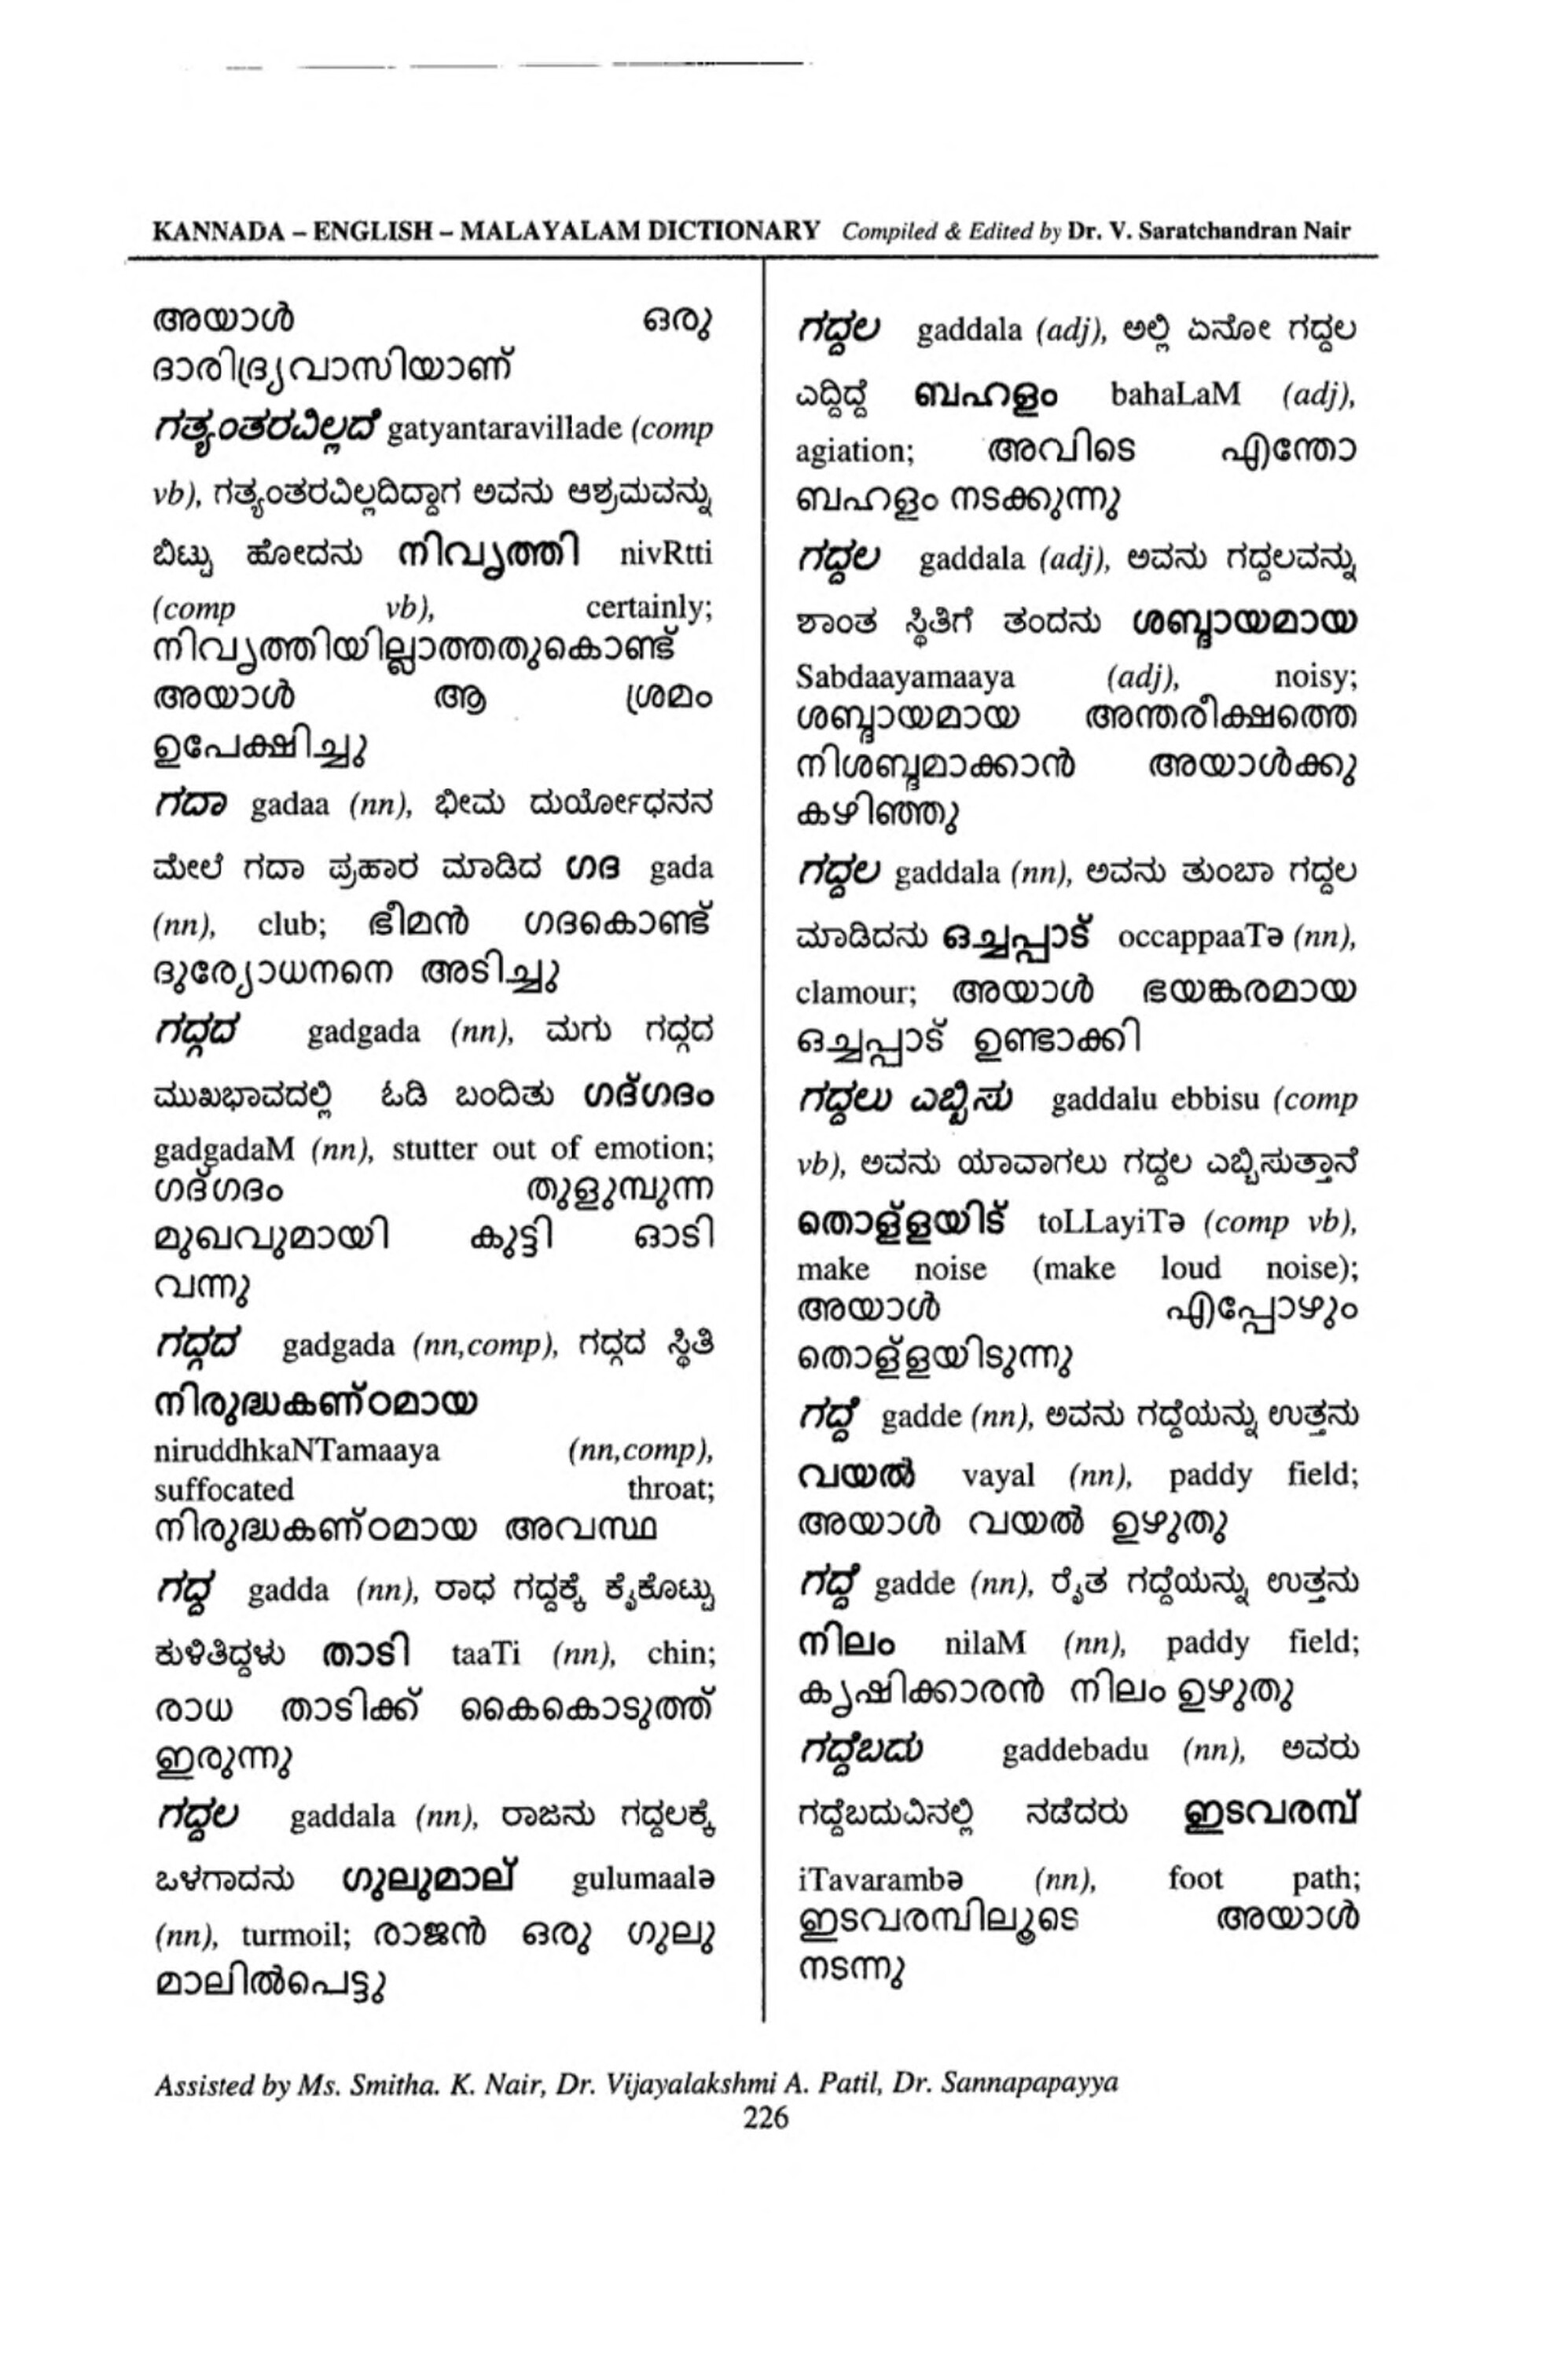 KANNADA – ENGLISH – MALAYALAM DICTIONARY Compiled & Edited by Dr. V. Saratchandran Nair
അയാൾ ഒരു
ദാരിദ്ര്യവാസിയാണ്
ಗತ್ಯಂತರವಿಲ್ಲದೆ gatyantaravillade (comp
vb), ಗತ್ಯಂತರವಿಲ್ಲದಿದ್ದಾಗ ಅವನು ಆಶ್ರಮವನ್ನು
ಬಿಟ್ಟು ಹೋದನು നിവൃത്തി nivRtti
(comp vb), certainly;
നിവൃത്തിയില്ലാത്തതുകൊണ്ട്
അയാൾ ആ ശ്രമം
ഉപേക്ഷിച്ചു
ಗದಾ gadaa (nn), ಭೀಮ ದುರ್ಯೋಧನನ
ಮೇಲೆ ಗದಾ ಪ್ರಹಾರ ಮಾಡಿದ ഗദ gada
(nn), club; ഭീമൻ ഗദകൊണ്ട്
ദുര്യോധനനെ അടിച്ചു
ಗದ್ಗದ gadgada (nn), ಮಗು ಗದ್ಗದ
ಮುಖಭಾವದಲ್ಲಿ ಓಡಿ ಬಂದಿತು ഗദ്ഗദം
gadgadaM (nn), stutter out of emotion;
ഗദ്ഗദം തുളുമ്പുന്ന
മുഖവുമായി കുട്ടി ഓടി
വന്നു
ಗದ್ಗದ gadgada (nn,comp), ಗದ್ಗದ ಸ್ಥಿತಿ
നിരുദ്ധകണ്ഠമായ
niruddhkaNTamaaya (nn,comp),
suffocated throat;
നിരുദ്ധകണ്ഠമായ അവസ്ഥ
ಗದ್ದ gadda (nn), ರಾಧ ಗದ್ದಕ್ಕೆ ಕೈಕೊಟ್ಟು
ಕುಳಿತಿದ್ದಳು താടി taaTi (nn), chin;
രാധ താടിക്ക് കൈകൊടുത്ത്
ഇരുന്നു
ಗದ್ದಲ gaddala (nn), ರಾಜನು ಗದ್ದಲಕ್ಕೆ
ಒಳಗಾದನು ഗുലുമാല് gulumaalə
(nn), turmoil; രാജൻ ഒരു ഗുലു
മാലിൽപെട്ടു
ಗದ್ದಲ gaddala (adj), ಅಲ್ಲಿ ಏನೋ ಗದ್ದಲ
ಎದ್ದಿದ್ದೆ ബഹളം bahaLaM (adj),
agiation; അവിടെ എന്തോ
ബഹളം നടക്കുന്നു
ಗದ್ದಲ gaddala (adj), ಅವನು ಗದ್ದಲವನ್ನು
ಶಾಂತ ಸ್ಥಿತಿಗೆ ತಂದನು ശബ്ദായമായ
Sabdaayamaaya (adj), noisy;
ശബ്ദായമായ അന്തരീക്ഷത്തെ
നിശബ്ദമാക്കാൻ അയാൾക്കു
കഴിഞ്ഞു
ಗದ್ದಲ gaddala (nn), ಅವನು ತುಂಬಾ ಗದ್ದಲ
ಮಾಡಿದನು ഒച്ചപ്പാട് occappaaTə (nn),
clamour; അയാൾ ഭയങ്കരമായ
ഒച്ചപ്പാട് ഉണ്ടാക്കി
ಗದ್ದಲು ಎಬ್ಬಿಸು gaddalu ebbisu (comp
vb), ಅವನು ಯಾವಾಗಲು ಗದ್ದಲ ಎಬ್ಬಿಸುತ್ತಾನೆ
തൊള്ളയിട് toLLayiTə (comp vb),
make noise (make loud noise);
അയാൾ എപ്പോഴും
തൊള്ളയിടുന്നു
ಗದ್ದೆ gadde (nn), ಅವನು ಗದ್ದೆಯನ್ನು ಉತ್ತನು
വയൽ vayal (nn), paddy field;
അയാൾ വയൽ ഉഴുതു
ಗದ್ದೆ gadde (nn), ರೈತ ಗದ್ದೆಯನ್ನು ಉತ್ತನು
നിലം nilaM (nn), paddy field;
കൃഷിക്കാരൻ നിലം ഉഴുതു
ಗದ್ದೆಬದು gaddebadu (nn), ಅವರು
ಗದ್ದೆಬದುವಿನಲ್ಲಿ ನಡೆದರು ഇടവരമ്പ്
iTavarambə (nn), foot path;
ഇടവരമ്പിലൂടെ അയാൾ
നടന്നു
Assisted by Ms. Smitha. K. Nair, Dr. Vijayalakshmi A. Patil, Dr. Sannapapayya
226